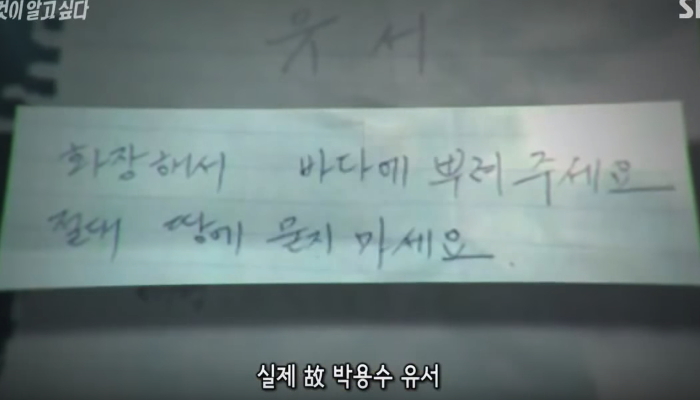 것이 알고싶다
유서
화장해서 바다에 뿌려 주세요
절대 땅에 묻지 마세요.
실제 故 박용수 유서